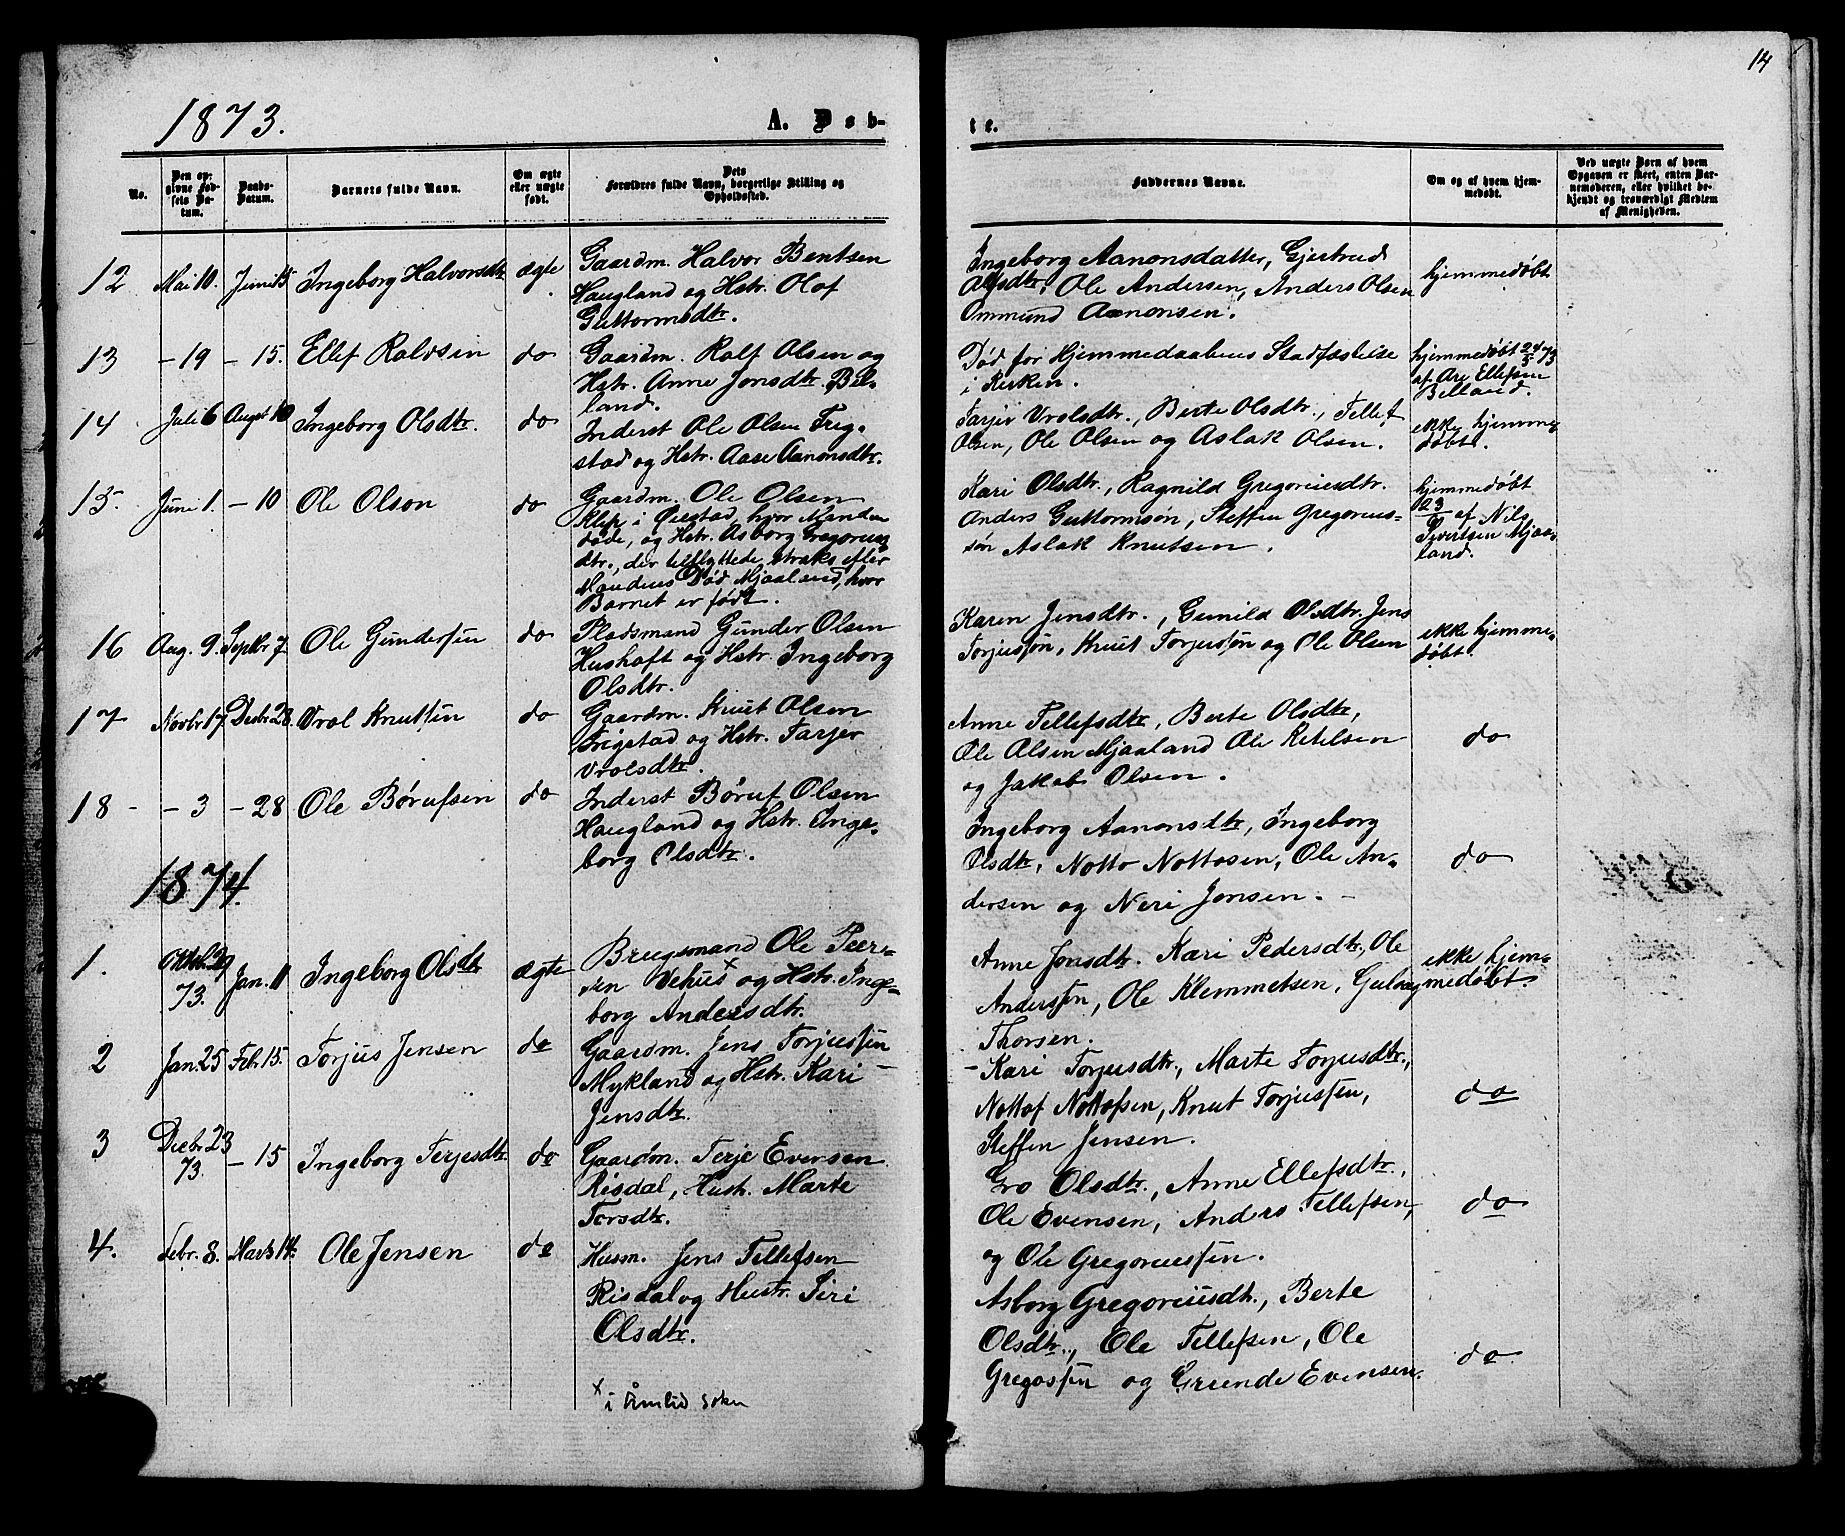 14
1873.
A. Døb-
te.
No.
Den opgivne Fødsels Datum.
Daabs-Datum.
Barnets fulde Navn.
Om ægte eller uægte født.
Dets Forældres fulde Navn, borgerlige Stilling og Opholdssted.
Faddernes Navne.
Om og af hvem hjemmedøbt.
Ved uægte Børn af hvem Opgaven er skeet, enten Barnemoderen, eller hvilket bekjendt og troværdigt Medlem af Menigheden.
12 Mai 10. Juni 15 Ingeborg Halvorsdtr ægte
Gaardm. Halvor Bentsen
Haugland og Hstr. Olof
Guttormsdtr.
Ingeborg Aanonsdatter, Gjertrud
Olsdtr, Ole Andersen, Anders Olsen
Ommund Aanonsen.
hjemmedøbt
13 - 19 - 15. Ellef Rolvsen do
Gaardm. Rolf Olsen og
Hstr. Anne Jonsdtr. Bel-
land.
Død før Hjemmedaabens Stadfæstelse
i Kirken.
hjemmedøbt 24/5 73
af Are Ellefsen
Belland.
14 Juli 6 August 10 Ingeborg Olsdtr. do
Inderst Ole Olsen Trig-
stad og Hstr. Aase Aanonsdtr.
Tarjer Vrolsdtr., Berte Olsdtr., Tellef
Olsen, Ole Olsen og Aslak Olsen.
ikke hjemme-
døbt.
15. Juni 1. - 10 Ole Olson do
Gaardm. Ole Olsen
Klep i Øiestad, hvor Manden
døde, og Hstr. Asborg Gregorius-
dtr., der tilflyttede straks efter
Mandens Død Mjaaland, hvor
Barnet er født.
Kari Olsdtr., Ragnild Gregoriusdtr.
Anders Guttormsøn, Steffen Gregorius-
søn Aslak Knutsen.
hjemmedøbt
af Nils
Sivertsen Mjaa-
land.
16 Aug. 9. Septbr 7 Ole Gundersen do
Pladsmand Gunder Olsen
Hushoft og Hstr. Ingeborg
Olsdtr.
Karen Jensdtr., Gunild Olsdtr. Jens
Torjussøn, Knut Torjussøn og Ole Olsen
ikke hjemme-
døbt.
17 Novbr 17. Decbr 28. Vrol Knutsen do
Gaardm. Knut Olsen
Trigstad og Hstr. Tarjer
Vrolsdtr.
Anne Tellefsdtr, Berte Olsdtr,
Ole Olsen Mjaaland Ole Ketelsen
og Jakob Olsen.
do
18 - - 3 - 28 Ole Børufsen do
Inderst Børuf Olsen
Haugland og Hstr. Inge-
borg Olsdtr.
Ingeborg Aanonsdtr, Ingeborg
Olsdtr, Notto Nottosen, Ole An-
dersen og Neri Jonsen. -
do
1874.
1. Oktbr. 29 73. Jan. 11 Ingeborg Olsdtr ægte
Brugsmand Ole Peer-
sen Vehus x og Hstr. Inge-
borg Andersdtr.
Anne Jonsdtr. Kari Pedersdtr, Ole
Anderssen, Ole Klemmetsen, Gulov
Thorsen.
ikke hjem-
medøbt.
2 Jan. 25 Feb. 15. Torjus Jensen do
Gaardm. Jens Torjussen
Mykland og Hstr. Kari -
Jensdtr.
- Kari Torjusdtr., Marte Torjusdtr.,
Nottof Nottofsen, Knut Torjussen,
Steffen Jensen.
do
3 Decbr 23 73. - 15 Ingeborg Terjesdtr. do
Gaardm. Terje Evensen
Risdal, Hustr. Marte
Torsdtr.
Gro Olsdtr., Anne Ellefsdtr.,
Ole Evensen, Anders Tellefsen,
og Ole Gregoriussen.
do
4. Febr. 8. Marts 14. Ole Jensen do
Husm. Jens Tellefsen
Risdal og Hustr. Siri
Olsdtr.
Asborg Gregoriusdtr., Berte
Olsdtr., Ole Tellefsen, Ole
Gregossen og Gunde Evensen.
do.
x i Åmlid sokn